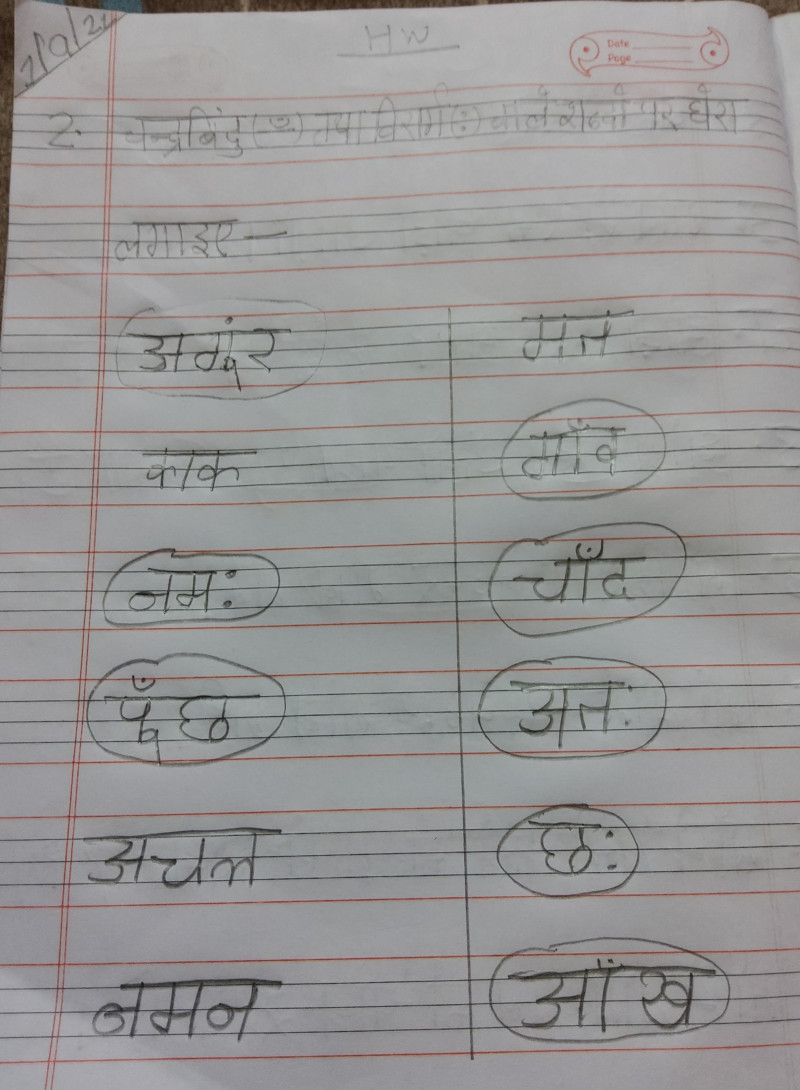 HW
Date
Page
2. चन्द्रबिंदु (ँ) तथा विसर्ग (:) वाले शब्दों पर घेरा
लगाइए —
अगूंर मत
काक गाँव
नमः चाँद
पूँछ अतः
अचल छः
नमन आँख